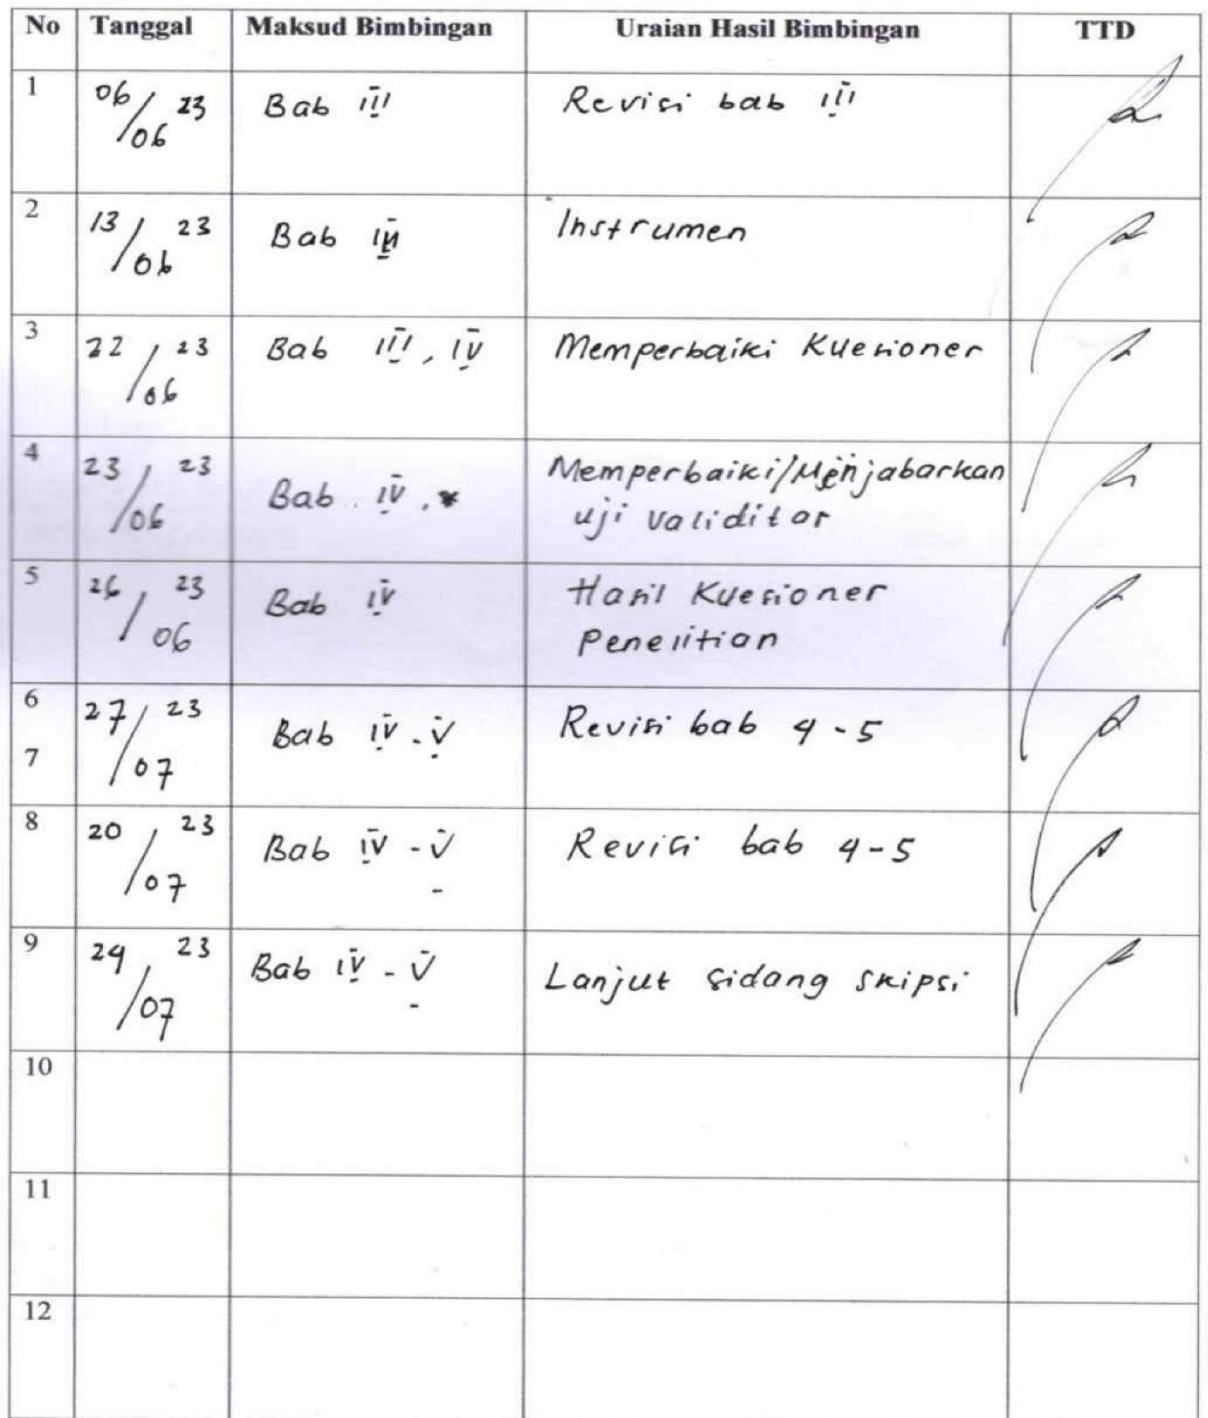 No Tanggal Maksud Bimbingan Uraian Hasil Bimbingan TTD
1 06/06 23 Bab III Revisi bab III
2 13/06 23 Bab III Instrumen
3 22/06 23 Bab III, IV Memperbaiki Kuesioner
4 23/06 23 Bab IV, Memperbaiki/Menjabarkan
uji validitas
5 26/06 23 Bab IV Hasil Kuesioner
Penelitian
6 27/07 23 Bab IV - V Revisi bab 4 - 5
7
8 20/07 23 Bab IV - V Revisi bab 4-5
9 24/07 23 Bab IV - V Lanjut sidang skipsi
10
11
12